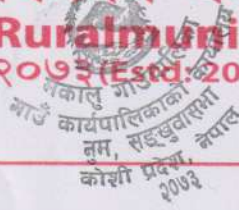 Ruralmuni
२०७३(Estd: 20
मकालु गाउँपालिका
गाउँ कार्यपालिकाको कार्यालय
नुम, सङ्खुवासभा
कोशी प्रदेश, नेपाल
२०७३